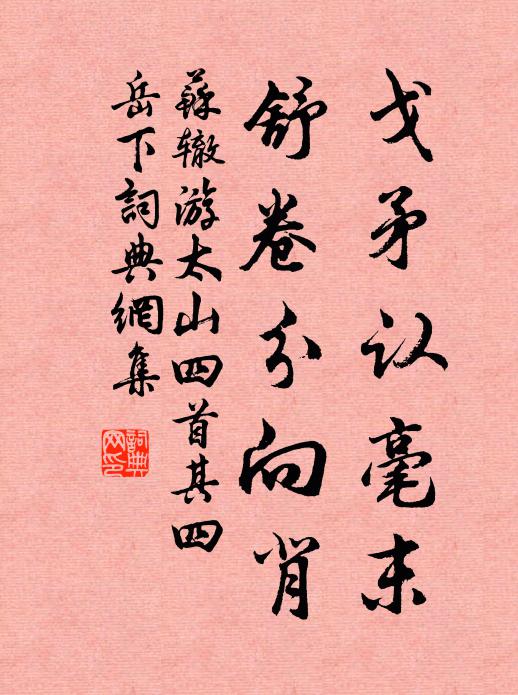 戈矛认毫末
舒卷分向背
蘇辙游太山四首其四
岳下詞典網集
詞典网印